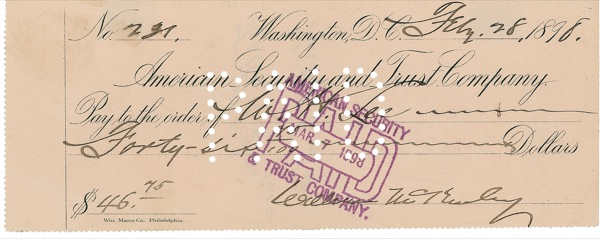 No. 221. Washington, D.C. Feby. 28, 1898.
American Security and Trust Company.
Pay to the order of
Forty-six Dollars
$46.75 William McKinley
Wm. Mann Co., Philadelphia.
AMERICAN SECURITY
PAID
MAR 1898
& TRUST COMPANY.